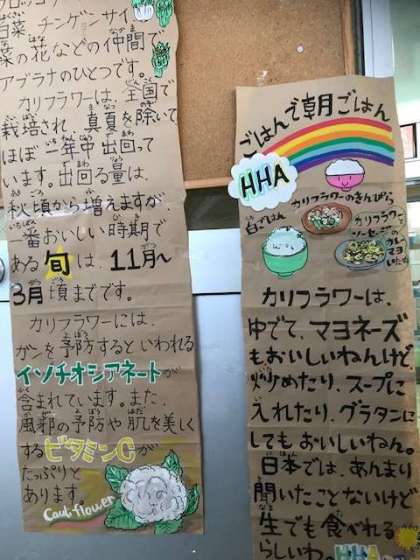 白菜 チンゲンサイ
菜の花などの仲間で
アブラナのひとつです。
カリフラワーは、全国で
栽培され、真夏を除いて
ほぼ一年中出回って
います。出回る量は、
秋頃から増えますが
一番おいしい時期で
ある旬は、11月〜
3月頃までです。
カリフラワーには、
ガンを予防するといわれる
イソチオシアネートが
含まれています。また、
風邪の予防や肌を美しく
するビタミンCが
たっぷりと
あります。
Cauliflower
ごはんで朝ごはん
HHA
カリフラワーのきんぴら
白ごはん
カリフラワーと
ソーセージの
カリフラワーは、
ゆでて、マヨネーズ
もおいしいねんけど
炒めたり、スープに
入れたり、グラタンに
してもおいしいねん。
日本では、あんまり
聞いたことないけど
生でも食べれる
らしいわ。HHA